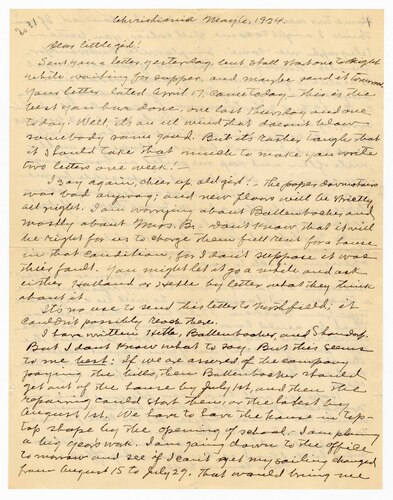 Christiania May 6, 1924.
Dear little girl!
Sent you a letter yesterday, but shall start one to-night
while waiting for supper, and maybe send it tomorrow.
Your letter dated April 17, came today - this is the
best you have done, one last Thursday and one
to-day. Well it's an ill wind that doesn't blow
somebody some good. But it's rather tough that
it should take that much to make you write
two letters one week! -
I say again, cheer up, old girl! - the paper downstairs
was bad anyway; and new floors will be strictly
all right. I am worrying about Ballenbacher and
mostly about Mrs. B. Don't know that it will
be right for us to charge them full rent for a house
in that condition, for I don't suppose it was
their fault. You might let it go a while and ask
either Holland or by letter what they think
about it.
It's no use to send this letter to Northfield; it
couldn't possibly reach there.
I have written Ballenbacher, and
But I don't know what to say. But this seems
to me best: If we are assured of the company
paying the bills, then Ballenbacher should
get out of the house by July 1st, and then the
repairing could start then, or the latest by
August 1st. We have to have the house in tip-
top shape by the opening of school - I am planning
a big year's work. I am going down to the office
tomorrow and see if I can't get my sailing changed
from August 15 to July 29. that would bring me